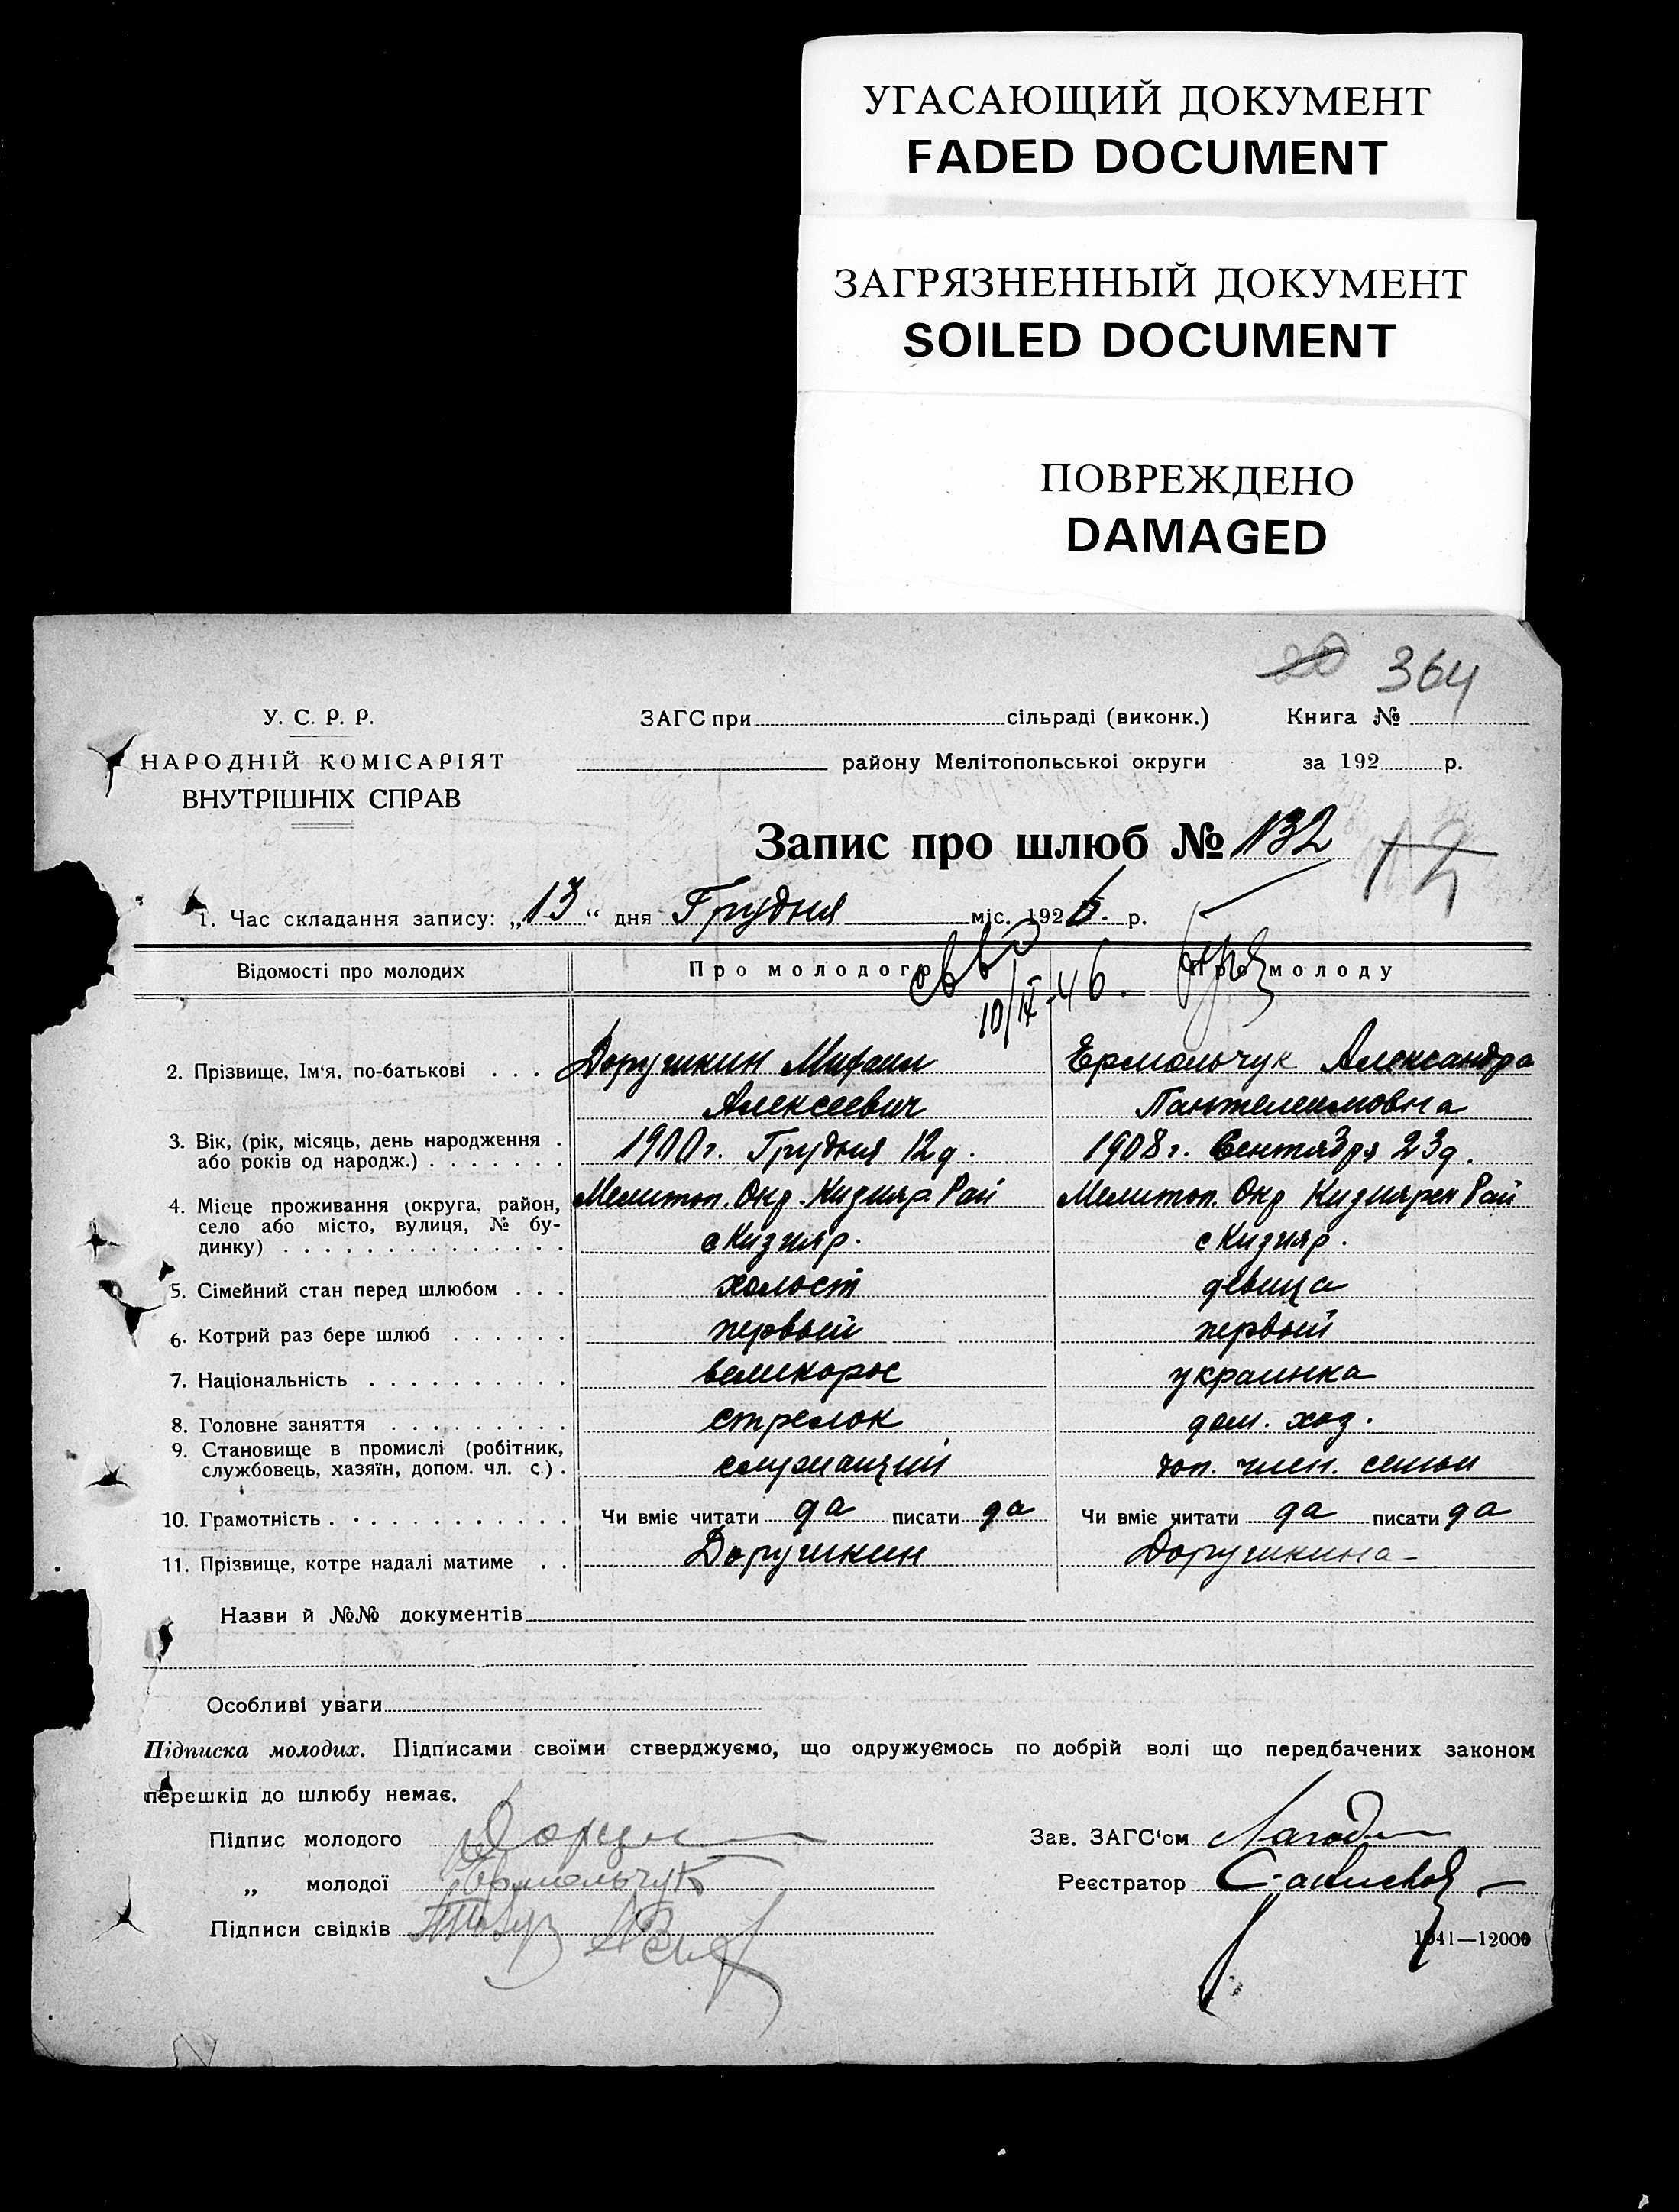 УГАСАЮЩИЙ ДОКУМЕНТ
FADED DOCUMENT
ЗАГРЯЗНЕННЫЙ ДОКУМЕНТ
SOILED DOCUMENT
ПОВРЕЖДЕНО
DAMAGED
20 364
У. С. Р. Р.
НАРОДНІЙ КОМІСАРІЯТ
ВНУТРІШНІХ СПРАВ
ЗАГС при сільраді (виконк.) Книга №
району Мелітопольської округи за 192 р.
Запис про шлюб № 132
1. Час складання запису: „13" дня Грудня міс. 1926. р.
Відомості про молодих Про молодого Про молоду
10/IX-46.
2. Прізвище, Ім'я, по-батькові . . . Дорушкин Михаил Ермольчук Александра
Алексеевич Пантелеимовна
3. Вік, (рік, місяць, день народження . 1900 г. Грудня 12 д. 1908 г. Сентября 23 д.
або років од народж.) . . . . . . .
4. Місце проживання (округа, район, Мелитоп. Окр. Кизияр. Рай Мелитоп. Окр Кизиярск Рай
село або місто, вулиця, № бу-
динку) . . . . . . . . . . . . . . с Кизияр. с Кизияр.
5. Сімейний стан перед шлюбом . . . холост девица
6. Котрий раз бере шлюб . . . . . . первый первый
7. Національність . . . . . . . . . . великорос украинка
8. Головне заняття . . . . . . . . . стрелок дом. хоз.
9. Становище в промислі (робітник,
службовець, хазяїн, допом. чл. с.) . служащий доп. член. семьи
10. Грамотність . . . . . . . . . . . . Чи вміє читати да писати да Чи вміє читати да писати да
11. Прізвище, котре надалі матиме . . Дорушкин Дорушкина
Назви й №№ документів
Особливі уваги
Підписка молодих. Підписами своїми стверджуємо, що одружуємось по добрій волі що передбачених законом
перешкід до шлюбу немає.
Підпис молодого Зав. ЗАГС'ом
„ молодої Ермольчук Реєстратор
Підписи свідків
1941—12000